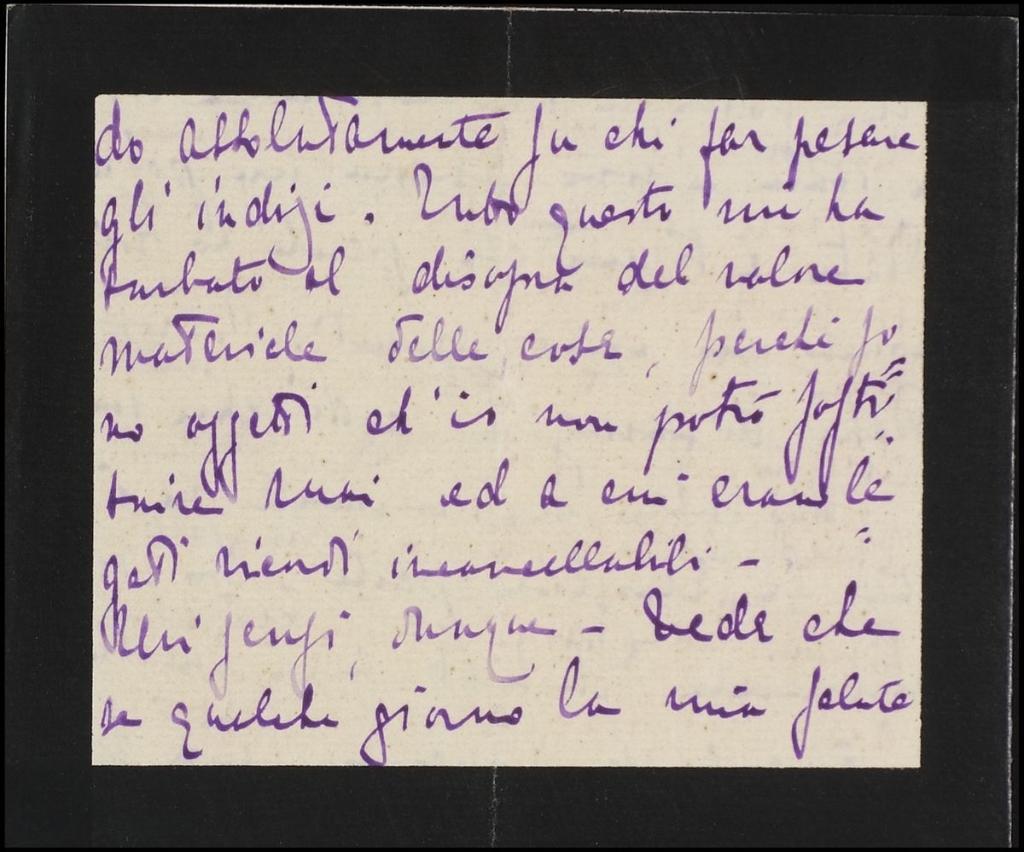 do assolutamente su chi far pesare
gli indizi. Tutto questo mi ha
turbato al disopra del valore
materiale delle cose, perché so=
no oggetti ch'io non potrò sosti=
tuire mai ed a cui erano le=
gati ricordi incancellabili -
Mi scusi, dunque - Vede che
se qualche giorno la mia salute